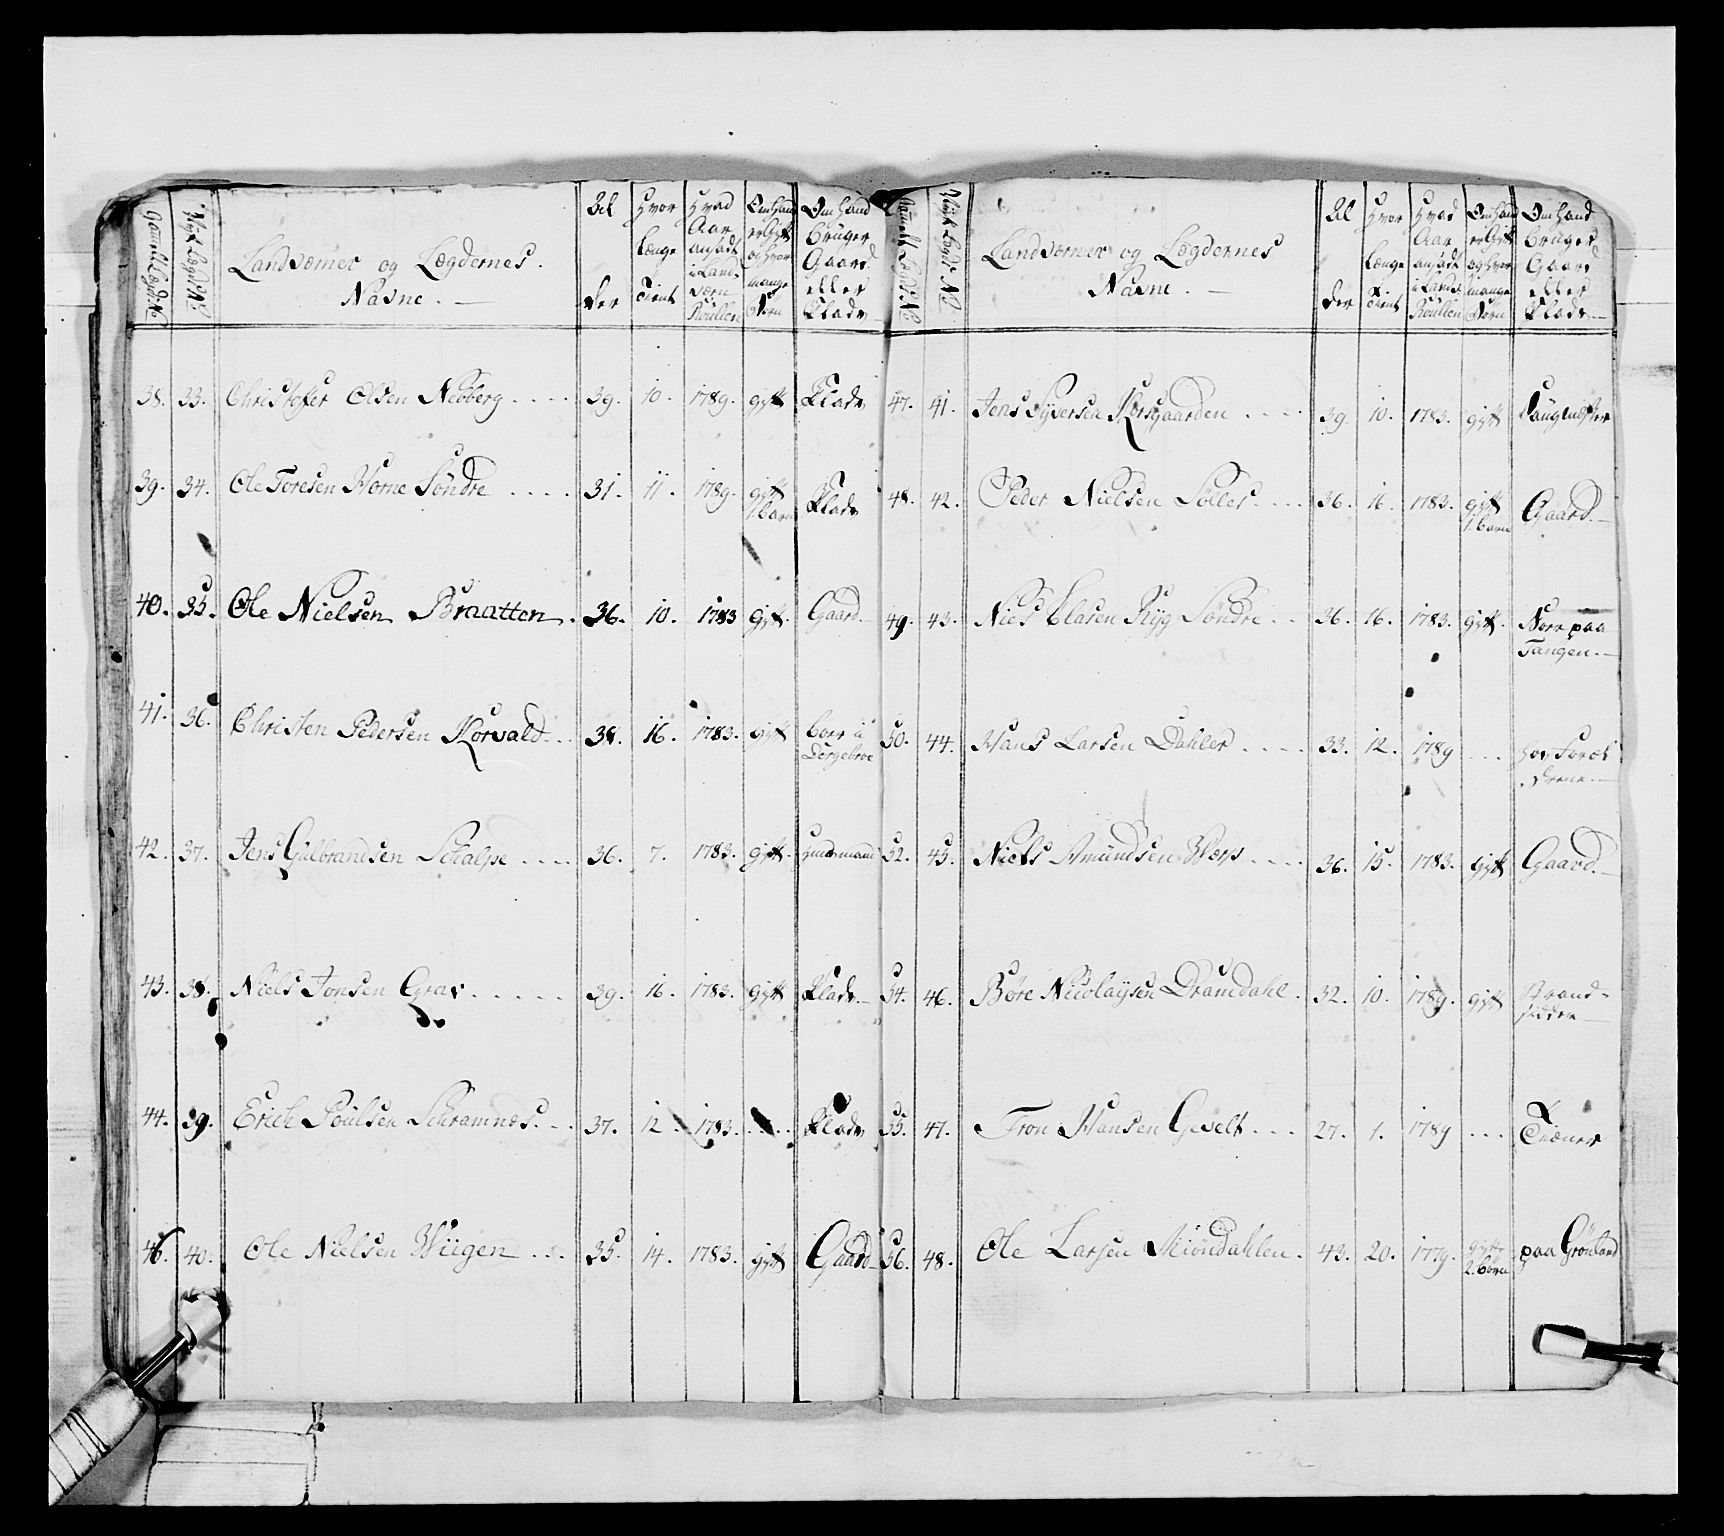 Gammelt Lægds No
Nyt Lægds No
Landværner og Lægdernes
Navne.
Al
der
Hvor
længe
Tient
Hvad
Aar
ansadt
i Land-
værn
Roullen
Om hand
er Gift
og hvor
mange
Børn
Om hand
bruger
Gaard
eller
Plads
38. 33. Christofer Olsen Nebberg . . . . 39. 10. 1789. gift Plads
39. 34. Ole Toresen Horne Søndre . . . . 31. 11. 1789. gift Plads
1. barn
40. 35. Ole Nielsen Braatten. 36. 10. 1783 gift. Gaard
41. 36. Christen Pedersen Korvald. . 38. 16. 1783. gift boer i
42. 37. Jens Gulbrandsen Schalpe . . . . 36. 7. 1783. gift. Huusmand
43. 38. Niels Jonsen Grav . . . . . 39. 16. 1783. gift Plads
44. 39. Erich Poulsen Schramnæs. . . 37. 12. 1783. . . . Plads
46. 40. Ole Nielsen Wiigen . . . 35. 14. 1783. gift Gaard
Gammelt Lægds No
Nyt Lægds No
Landværner og Lægdernes
Navne.
Al
der
Hvor
længe
Tient
Hvad
Aar
ansadt
i Lands
Roullen
Om hand
er Gift
og hvor
mange
Børn
Om hand
bruger
Gaard
eller
Plads
47. 41. Jens Syversen Korsgaarden . . . . 39. 10. 1783. gift
48. 42. Peder Nielsen Solles. . . . 36. 16. 1783. gift Gaard.
1. barn
49. 43. Niels Clasen Ryg Søndre . . 36. 16. 1783. gift. paa
Tangen.
50. 44. Hans Larsen Dahler . . . . 33. 12. 1789 . . . hos Foræl
drene.
52. 45. Niels Amundsen Werp . . . . 36. 15. 1783. gift Gaard.
54. 46. Børe Nicolaysen Dramdahl. 32. 10. 1789. gift Strand-
sidder
55. 47. Tron Hansen Gevelt . . . 27. 1. 1789 . . . Tiener
56. 48. Ole Larsen Miøndahlen. 43. 20. 1779. gift paa Grønland
2. børn